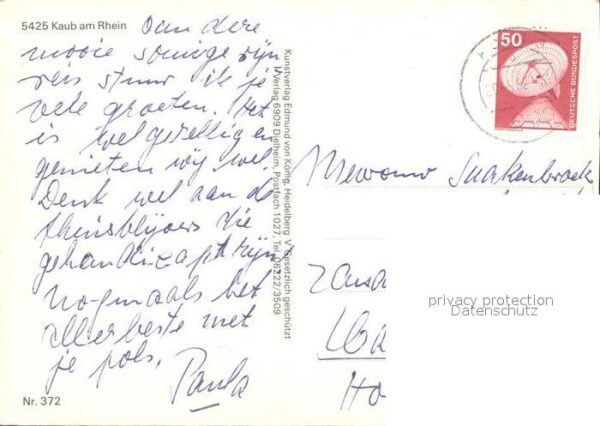 5425 Kaub am Rhein
Van deze
mooie sonnige rijn
reis stuur ik je
vele groeten. Het
is wel gezellig en
genieten wij wel
Denk wel aan de
thuisblijvers die
gehandicapt zijn
nogmaals het
allerbeste met
je pols.
Paula
Nr. 372
Kunstverlag Edmund von König, Heidelberg
Verlag 6909 Dielheim, Postfach 1027, Tel. 06222/3509
Gesetzlich geschützt
50
DEUTSCHE BUNDESPOST
Mevrouw
privacy protection
Datenschutz
Ho